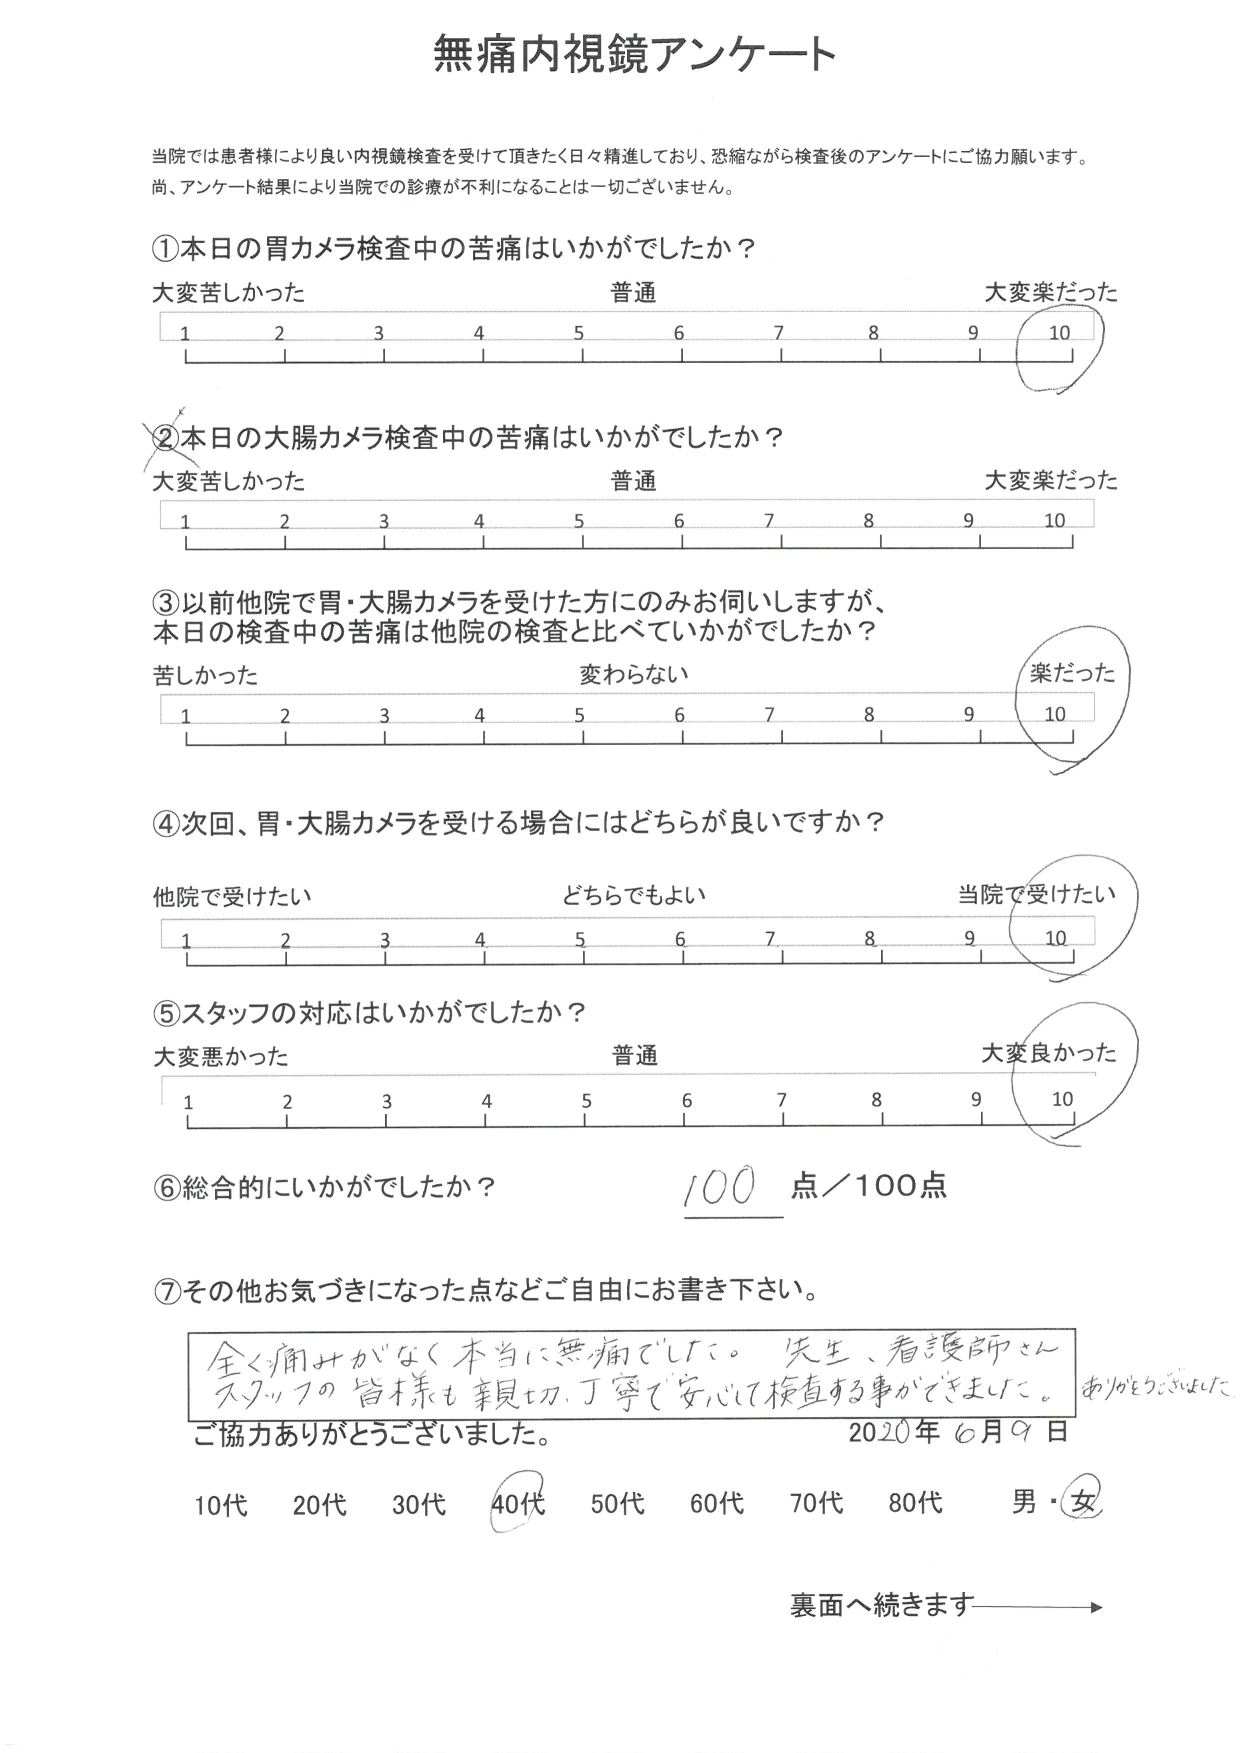 無痛内視鏡アンケート
当院では患者様により良い内視鏡検査を受けて頂きたく日々精進しており、恐縮ながら検査後のアンケートにご協力願います。
尚、アンケート結果により当院での診療が不利になることは一切ございません。
①本日の胃カメラ検査中の苦痛はいかがでしたか？
大変苦しかった 普通 大変楽だった
1 2 3 4 5 6 7 8 9 10
②本日の大腸カメラ検査中の苦痛はいかがでしたか？
大変苦しかった 普通 大変楽だった
1 2 3 4 5 6 7 8 9 10
③以前他院で胃・大腸カメラを受けた方にのみお伺いしますが、
本日の検査中の苦痛は他院の検査と比べていかがでしたか？
苦しかった 変わらない 楽だった
1 2 3 4 5 6 7 8 9 10
④次回、胃・大腸カメラを受ける場合にはどちらが良いですか？
他院で受けたい どちらでもよい 当院で受けたい
1 2 3 4 5 6 7 8 9 10
⑤スタッフの対応はいかがでしたか？
大変悪かった 普通 大変良かった
1 2 3 4 5 6 7 8 9 10
⑥総合的にいかがでしたか？ 100 点／100点
⑦その他お気づきになった点などご自由にお書き下さい。
全く痛みがなく本当に無痛でした。 先生、看護師さん
スタッフの皆様も親切、丁寧で安心して検査する事ができました。 ありがとうございました
ご協力ありがとうございました。 2020年 6月 9日
10代 20代 30代 40代 50代 60代 70代 80代 男・女
裏面へ続きます